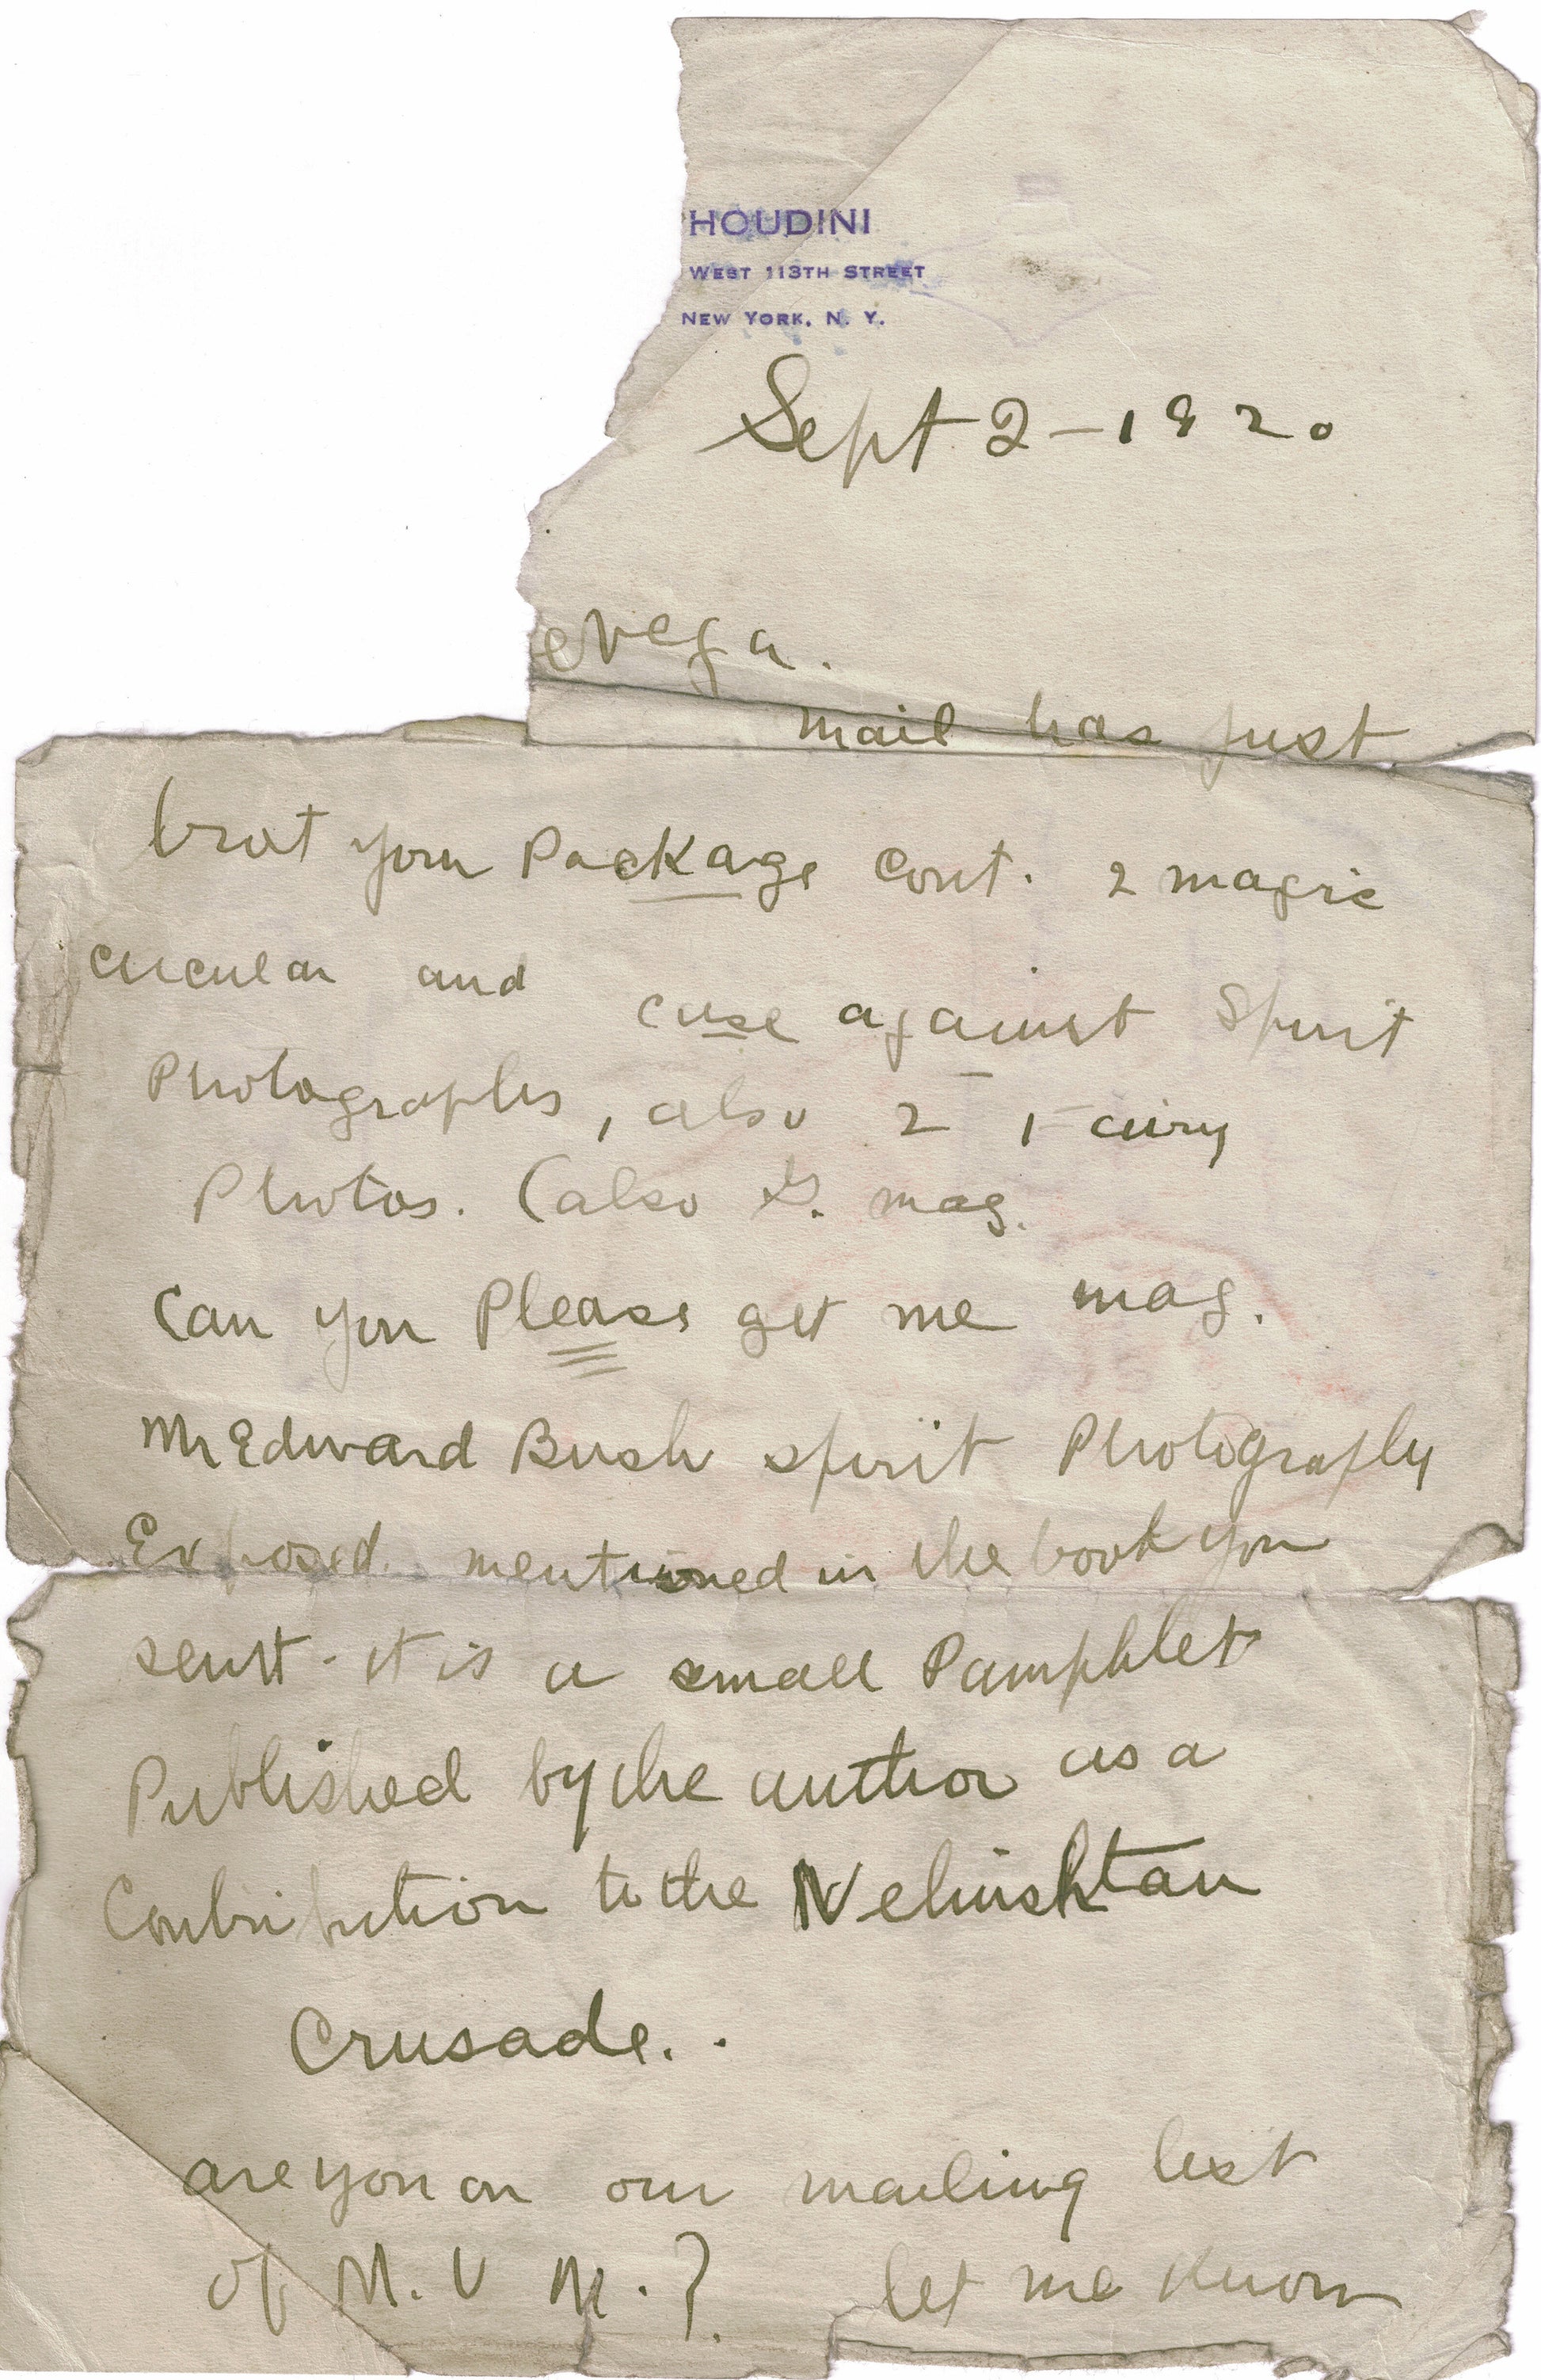 HOUDINI
WEST 113TH STREET
NEW YORK, N. Y.
Sept 2-1920
eVega.
mail has just
brot your Package cont. 2 magic
circular and case against Spirit
Photographs, also 2 Fairy
Photos. (also G. mag.
Can you Please get me mag.
Mr Edward Bush spirit Photography
Exposed mentioned in the book you
sent. it is a small Pamphlet
Published by the author as a
Contribution to the Nehushtan
Crusade..
are you on our mailing list
of M. U M.? let me know